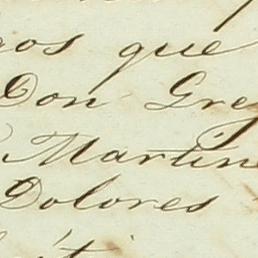 gos que
Don Gre
Martin
Dolores